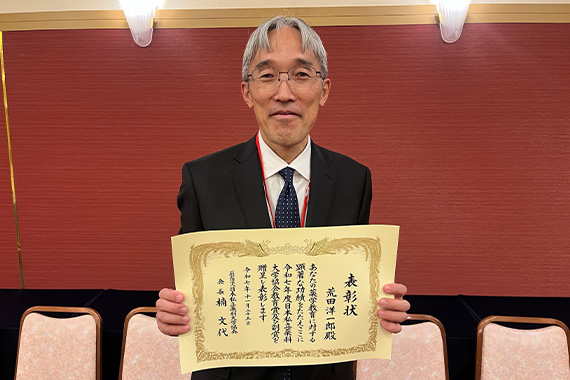 表彰状
荒田洋一郎殿
あなたの薬学教育に対する
顕著な功績をたたえここに
令和七年度日本私立薬科
大学協会教育賞及び副賞を
贈呈し表彰します
令和七年十一月二十五日
一般社団法人日本私立薬科大学協会
会長 楠 文代